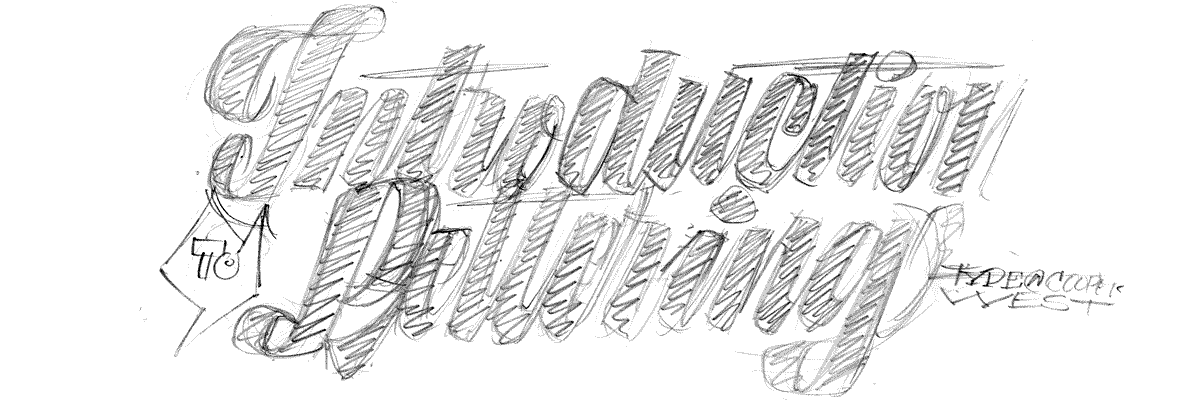 Introduction
TO Lettering
TYPE@COOPER
WEST